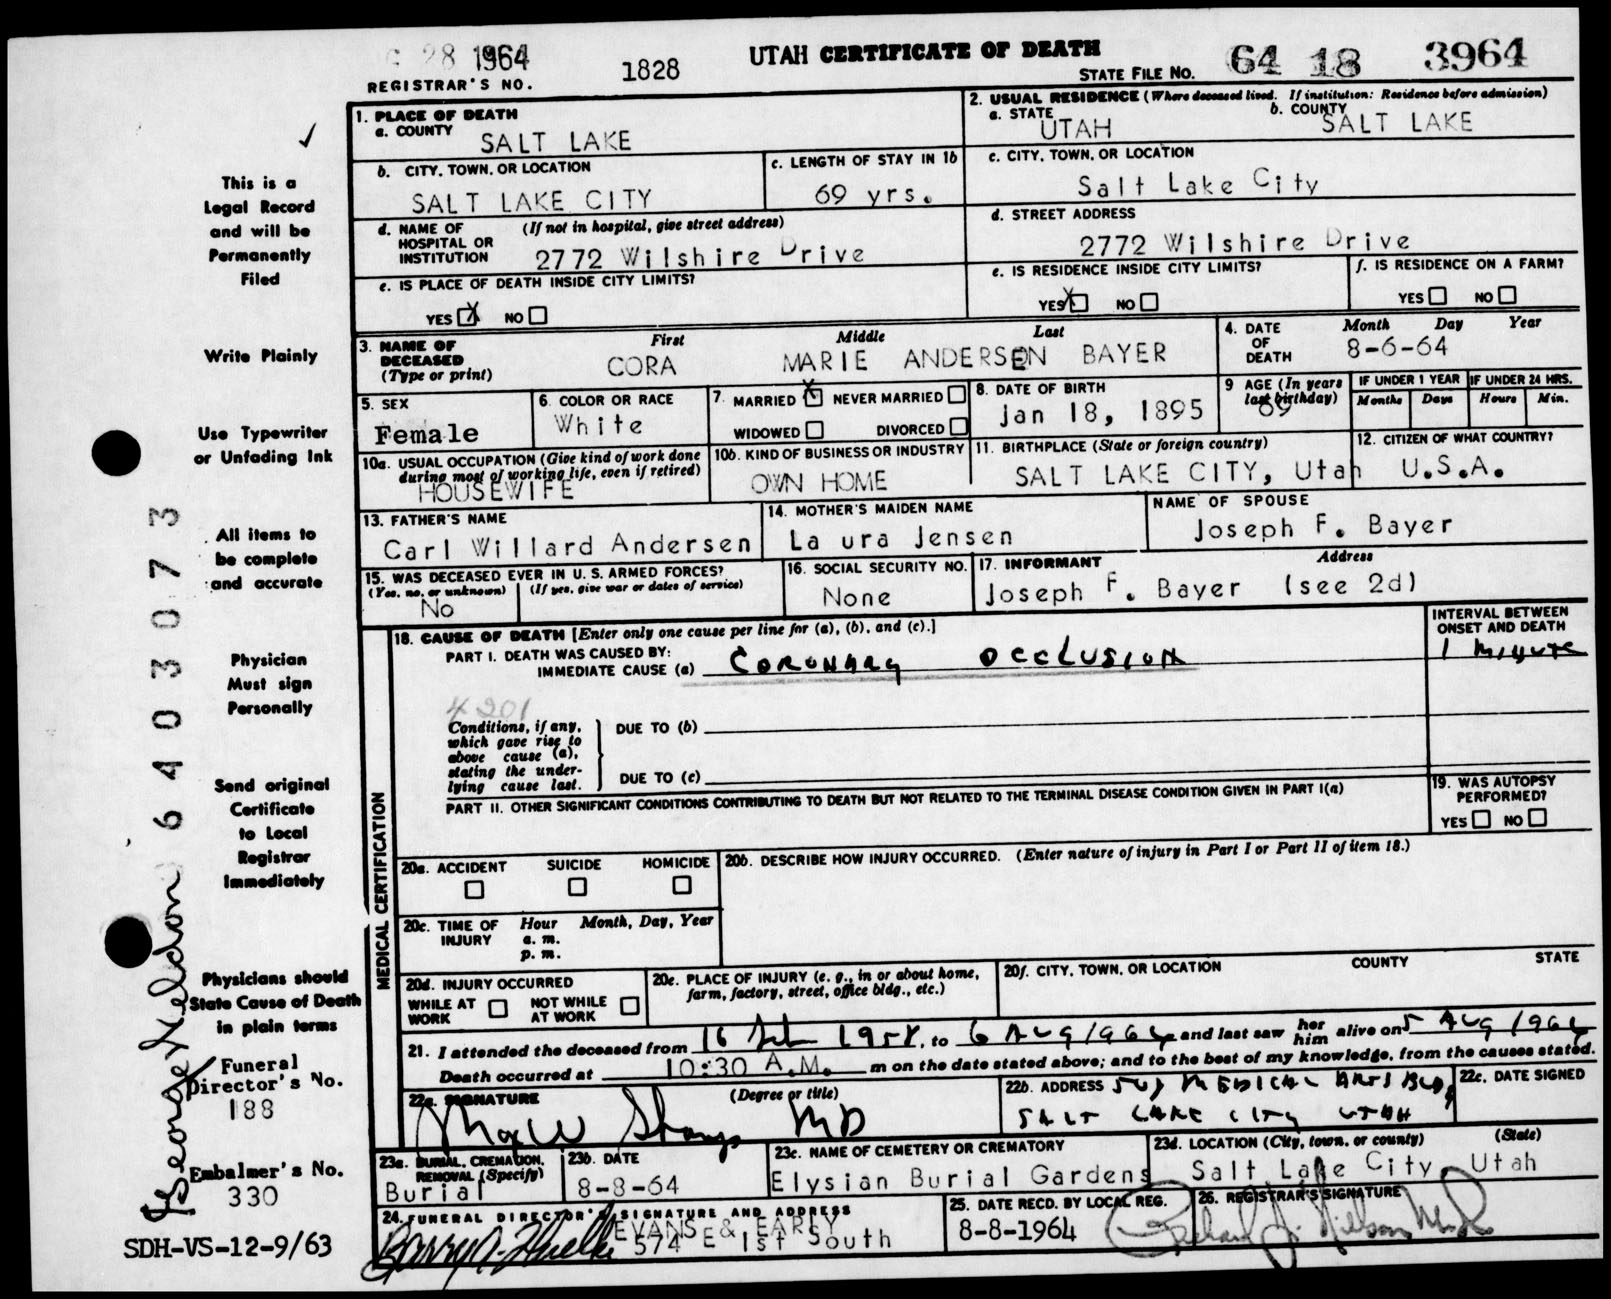 28 1964
REGISTRAR'S NO. 1828
UTAH CERTIFICATE OF DEATH
STATE FILE NO. 64 18 3964
This is a
Legal Record
and will be
Permanently
Filed
Write Plainly
Use Typewriter
or Unfading Ink
All items to
be complete
and accurate
Physician
Must sign
Personally
Send original
Certificate
to Local
Registrar
Immediately
Physicians should
State Cause of Death
in plain terms
Funeral
Director's No.
188
Embalmer's No.
330
SDH-VS-12-9/63
6403073
1. PLACE OF DEATH
a. COUNTY
SALT LAKE
2. USUAL RESIDENCE (Where deceased lived. If institution: Residence before admission)
a. STATE UTAH b. COUNTY SALT LAKE
b. CITY, TOWN, OR LOCATION
SALT LAKE CITY
c. LENGTH OF STAY IN 1b
69 yrs.
c. CITY, TOWN, OR LOCATION
Salt Lake City
d. NAME OF HOSPITAL OR INSTITUTION (If not in hospital, give street address)
2772 Wilshire Drive
d. STREET ADDRESS
2772 Wilshire Drive
e. IS PLACE OF DEATH INSIDE CITY LIMITS?
YES X NO
e. IS RESIDENCE INSIDE CITY LIMITS?
YES X NO
f. IS RESIDENCE ON A FARM?
YES NO
3. NAME OF DECEASED (Type or print) First Middle Last
CORA MARIE ANDERSEN BAYER
4. DATE OF DEATH Month Day Year
8-6-64
5. SEX
Female
6. COLOR OR RACE
White
7. MARRIED X NEVER MARRIED
WIDOWED DIVORCED
8. DATE OF BIRTH
Jan 18, 1895
9 AGE (In years last birthday)
69
IF UNDER 1 YEAR IF UNDER 24 HRS.
Months Days Hours Min.
10a. USUAL OCCUPATION (Give kind of work done during most of working life, even if retired)
HOUSEWIFE
10b. KIND OF BUSINESS OR INDUSTRY
OWN HOME
11. BIRTHPLACE (State or foreign country)
SALT LAKE CITY, Utah
12. CITIZEN OF WHAT COUNTRY?
U.S.A.
13. FATHER'S NAME
Carl Willard Andersen
14. MOTHER'S MAIDEN NAME
La ura Jensen
NAME OF SPOUSE
Joseph F. Bayer
15. WAS DECEASED EVER IN U. S. ARMED FORCES?
(Yes, no, or unknown) (If yes, give war or dates of service)
No
16. SOCIAL SECURITY NO.
None
17. INFORMANT Address
Joseph F. Bayer (see 2d)
MEDICAL CERTIFICATION
18. CAUSE OF DEATH [Enter only one cause per line for (a), (b), and (c).]
INTERVAL BETWEEN ONSET AND DEATH
PART I. DEATH WAS CAUSED BY:
IMMEDIATE CAUSE (a) CORONARY OCCLUSION 1 MINUTE
4201
Conditions, if any, which gave rise to above cause (a), stating the underlying cause last.
DUE TO (b)
DUE TO (c)
PART II. OTHER SIGNIFICANT CONDITIONS CONTRIBUTING TO DEATH BUT NOT RELATED TO THE TERMINAL DISEASE CONDITION GIVEN IN PART I(a)
19. WAS AUTOPSY PERFORMED?
YES NO
20a. ACCIDENT SUICIDE HOMICIDE
20b. DESCRIBE HOW INJURY OCCURRED. (Enter nature of injury in Part I or Part II of item 18.)
20c. TIME OF INJURY Hour Month, Day, Year
a. m.
p. m.
20d. INJURY OCCURRED
WHILE AT WORK NOT WHILE AT WORK
20e. PLACE OF INJURY (e. g., in or about home, farm, factory, street, office bldg., etc.)
20f. CITY, TOWN, OR LOCATION COUNTY STATE
21. I attended the deceased from 16 1958, to 6 AUG 1964 and last saw her him alive on 5 AUG 1964
Death occurred at 10:30 A.M. m on the date stated above; and to the best of my knowledge, from the causes stated.
22a. SIGNATURE (Degree or title)
MD
22b. ADDRESS 507 MEDICAL ARTS BLDG
SALT LAKE CITY UTAH
22c. DATE SIGNED
23a. BURIAL, CREMATION, REMOVAL (Specify)
Burial
23b. DATE
8-8-64
23c. NAME OF CEMETERY OR CREMATORY
Elysian Burial Gardens
23d. LOCATION (City, town, or county) (State)
Salt Lake City, Utah
24. FUNERAL DIRECTOR'S SIGNATURE AND ADDRESS
EVANS & EARLY
574 E 1st South
25. DATE RECD. BY LOCAL REG.
8-8-1964
26. REGISTRAR'S SIGNATURE